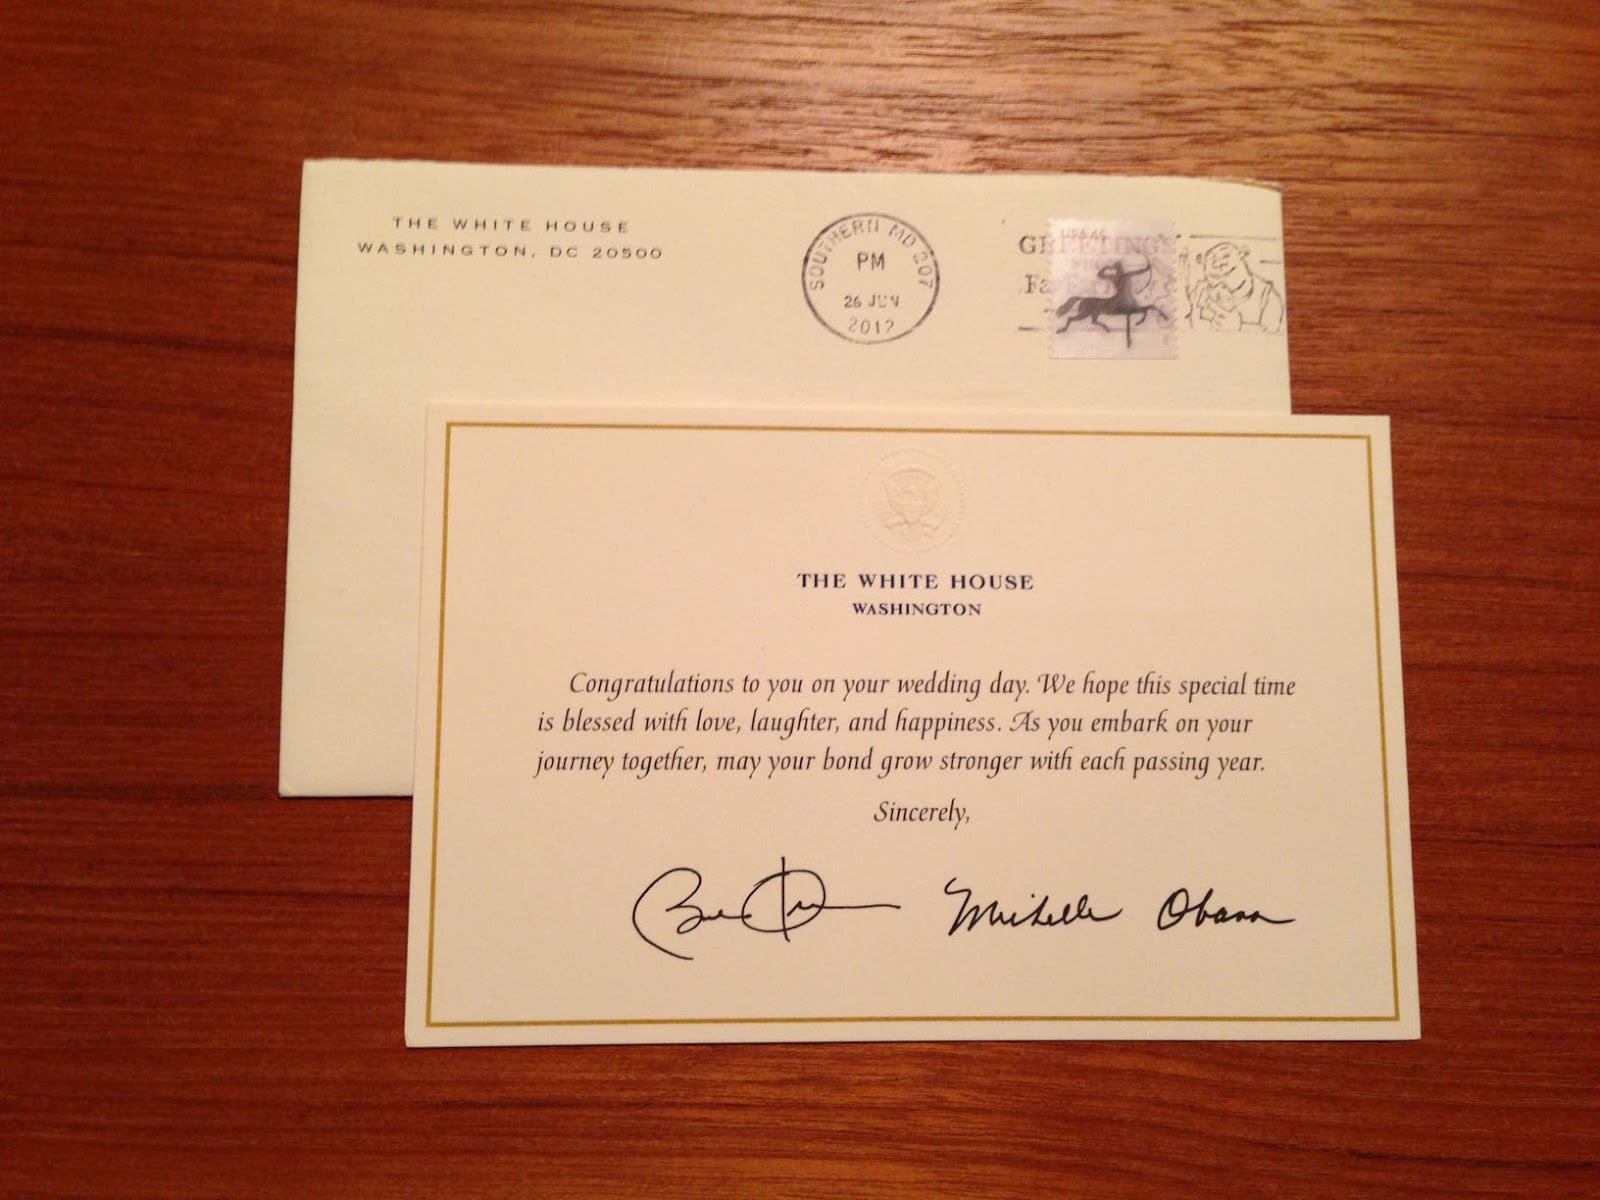 THE WHITE HOUSE
WASHINGTON, DC 20500
SOUTHERN MD 207
PM
26 JUN
2012
USA
GREETINGS
THE WHITE HOUSE
WASHINGTON
Congratulations to you on your wedding day. We hope this special time
is blessed with love, laughter, and happiness. As you embark on your
journey together, may your bond grow stronger with each passing year.
Sincerely,
Michelle Obama